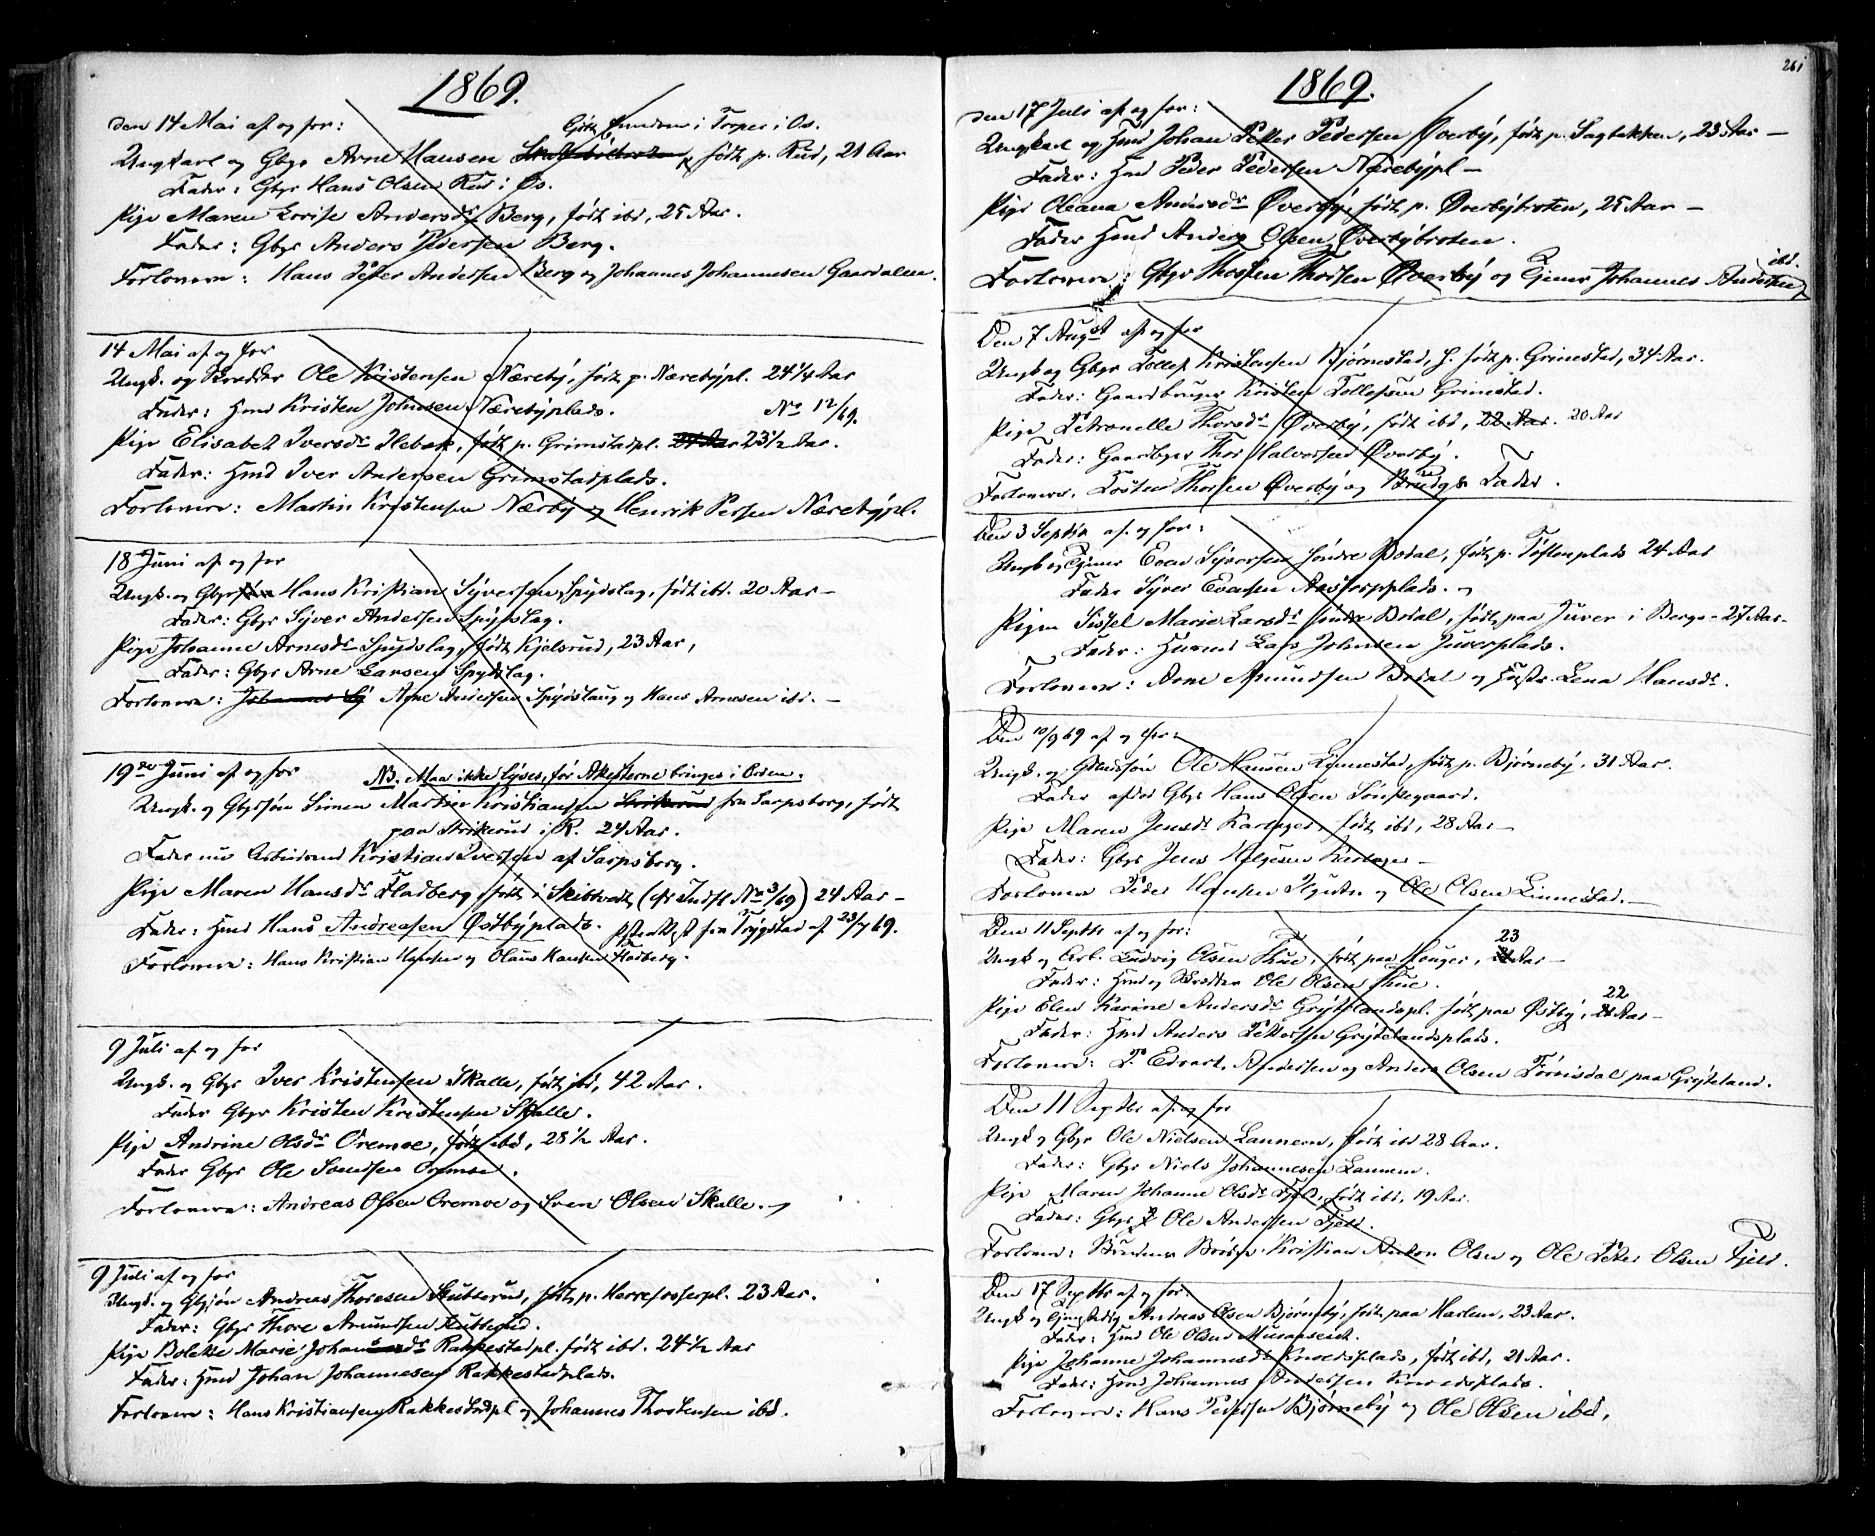 1869.
den 14 Mai af og for:
Gift Enkem i Torper i Os.
Ungkarl og Gbgr Arne Hansen født p. Rud, 21 Aar
Fader: Gbgr Hans Olsen Rud i Os.
Pige Maren Lovise Andersdr Berg, født ibd, 25 Aar.
Fader: Gbgr Anders Pedersen Berg.
Forlovere: Hans Peter Andersen Berg og Johannes Johannesen Gaardalen.
14 Mai af og for
Ungk. og Skrædder Ole Kristensen Næreby, født p. Nærebypl. 24 1/4 Aar
Fader: Hmd Kristen Johnsen Nærebyplads. No 12/69.
Pige Elisabet Iversdr Ilebæk, født p. Grimstadpl. 23 1/2 Aar.
Fader: Hmd Iver Andersen Grimstadplads.
Forlovere: Martin Kristensen Nærby og Henrik Persen Nærebypl.
18 Juni af og for
Ungk. og Gbgrsøn Hans Kristian Syversen Spydslag, født ibd. 20 Aar –
Fader: Gbgr Syver Andersen Spydslag.
Pige Johanne Arnesdr Spydslag, født Kjelsrud, 23 Aar,
Fader: Gbgr Arne Larsen Spydslag.
Forlovere: Arne Andersen Spydslaug og Hans Arnesen ibd. –
19de Juni af og for NB. Maa ikke lyses, før Attesterne bringes i Orden.
Ungk. og Gbgrsøn Simen Martin Kristiansen Strikerud fra Sarpsborg, født
paa Strikerud i R. 24 Aar.
Fader nu Arbeidsmd Kristian Iversen af Sarpsborg.
Pige Maren Hansdr Fladberg, født i Skibtvedt (cfr Indfl No 3/69) 24 Aar –
Fader: Hmd Hans Andreasen Østbyplads. Attest fra Trygstad af 23/7 69.
Forlovere: Hans Kristian Hansen og Olaus Hansen Fladberg.
9 Juli af og for
Ungk. og Gbgr Iver Kristensen Skalle, født ibd, 42 Aar.
Fader Gbgr Kristen Kristensen Skalle.
Pige Andrine Olsdr Oremoe, født ibd, 28 1/2 Aar.
Fader Gbgr Ole Svendsen Oremoe.
Forlovere: Andreas Olsen Oremoe og Sven Olsen Skalle. –
9 Juli af og for
Ungk. og Gbgsøn Andreas Thoresen Kubberud, født p. Herrefosserpl. 23 Aar.
Fader: Gbgr Thore Amundsen Kubberud.
Pige Bolette Marie Johansdr Rakkestadpl. født ibd. 24 1/2 Aar
Fader: Hmd Johan Johannesen Rakkestadplads.
Forlovere: Hans Kristiansen Rakkestadpl og Johannes Thostensen ibd.
261
1869.
den 17 Juli af og for:
Ungkarl og Hmd Johan Petter Pedersen Øverby, født p. Sagbakken, 23 Aar –
Fader: Hmd Peder Pedersen Nærebypl –
Pige Oleana Andersdr Øverby, født p. Øverbybroten, 25 Aar –
Fader Hmd Anders Olsen Øverbybroten.
Forlovere: Gbgr Thosten Thorsen Øverby og Tjener Johannes Andersen ibd.
Den 7 August af og for
Ungk og Gbgr Tollef Kristensen Bjørnestad, f. født p. Grimstad, 34 Aar.
Fader: Gaardbruger Kristen Tollefsen Grimstad.
Pige Petronelle Thorsdr Øverby, født ibd, 22 Aar. 20 Aar
Fader: Gaardbgr Thor Halvorsen Øverby.
Forlovere. Tosten Thorsen Øverby og Brudgs Fader.
Den 3 Septbr af og for:
Ungk og Tjener Even Syversen søndre Bodal, født p. Toftenplads 24 Aar
Fader Syver Evensen Aastorpplads.
Pigen Sissel Marie Larsdr søndre Bodal, født paa Juver i Berge – 27 Aar –
Fader: Husmd Lars Johnsen Juverplads.
Forlovere: Arne Amundsen Bodal og Hustr. Lena Hansdr.
Den 10/9 69 af og for:
Ungk. og Gmdssøn Ole Hansen Lynnestad, født p. Bjørneby, 31 Aar.
Fader afdøde Gbgr Hans Olsen Sønkegaard.
Pige Maren Jensdr Karlager, født ibd, 28 Aar –
Fader: Gbgr Jens Helgesen Karlager –
Forlovere Peder Hansen og Ole Olsen Linnestad. –
Den 11 Septbr af og for:
Ungk og Arb. Ludvig Olsen Thue, født paa Houger, 23 Aar –
Fader: Hmd og Skrædder Ole Olsen Thue.
Pige Elen Karine Andersdr Grytelandspl. født paa Østby, 22 Aar –
Fader: Hmd Anders Pettersen Grytelandsplads.
Forlovere: P. Edvart. Andersen og Anders Olsen Tørrisdal paa Gryteland.
Den 11 Septbr af og for
Ungk og Gbgr Ole Nielsen Lannem, født ibd 28 Aar.
Fader: Gbgr Niels Johannesen Lannem.
Pige Maren Johanne Olsdr Fjeld, født ibd, 19 Aar.
Fader: Gbgr Ole Andersen Fjeld.
Forlovere: Brudens Brødre Kristian Anton Olsen og Ole Peter Olsen Fjeld.
Den 17 Septbr af og for:
Ungk og Andreas Olsen Bjørneby, født paa Harlem, 23 Aar.
Fader: Hmd Ole Olsen Musanseiet.
Pige Johanne Johannesdr Knoedsplads, født ibd, 21 Aar.
Fader: Hmd Johannes Andersen Knoedsplads.
Forlovere: Hans Pedersen Bjørneby og Ole Olsen ibd.